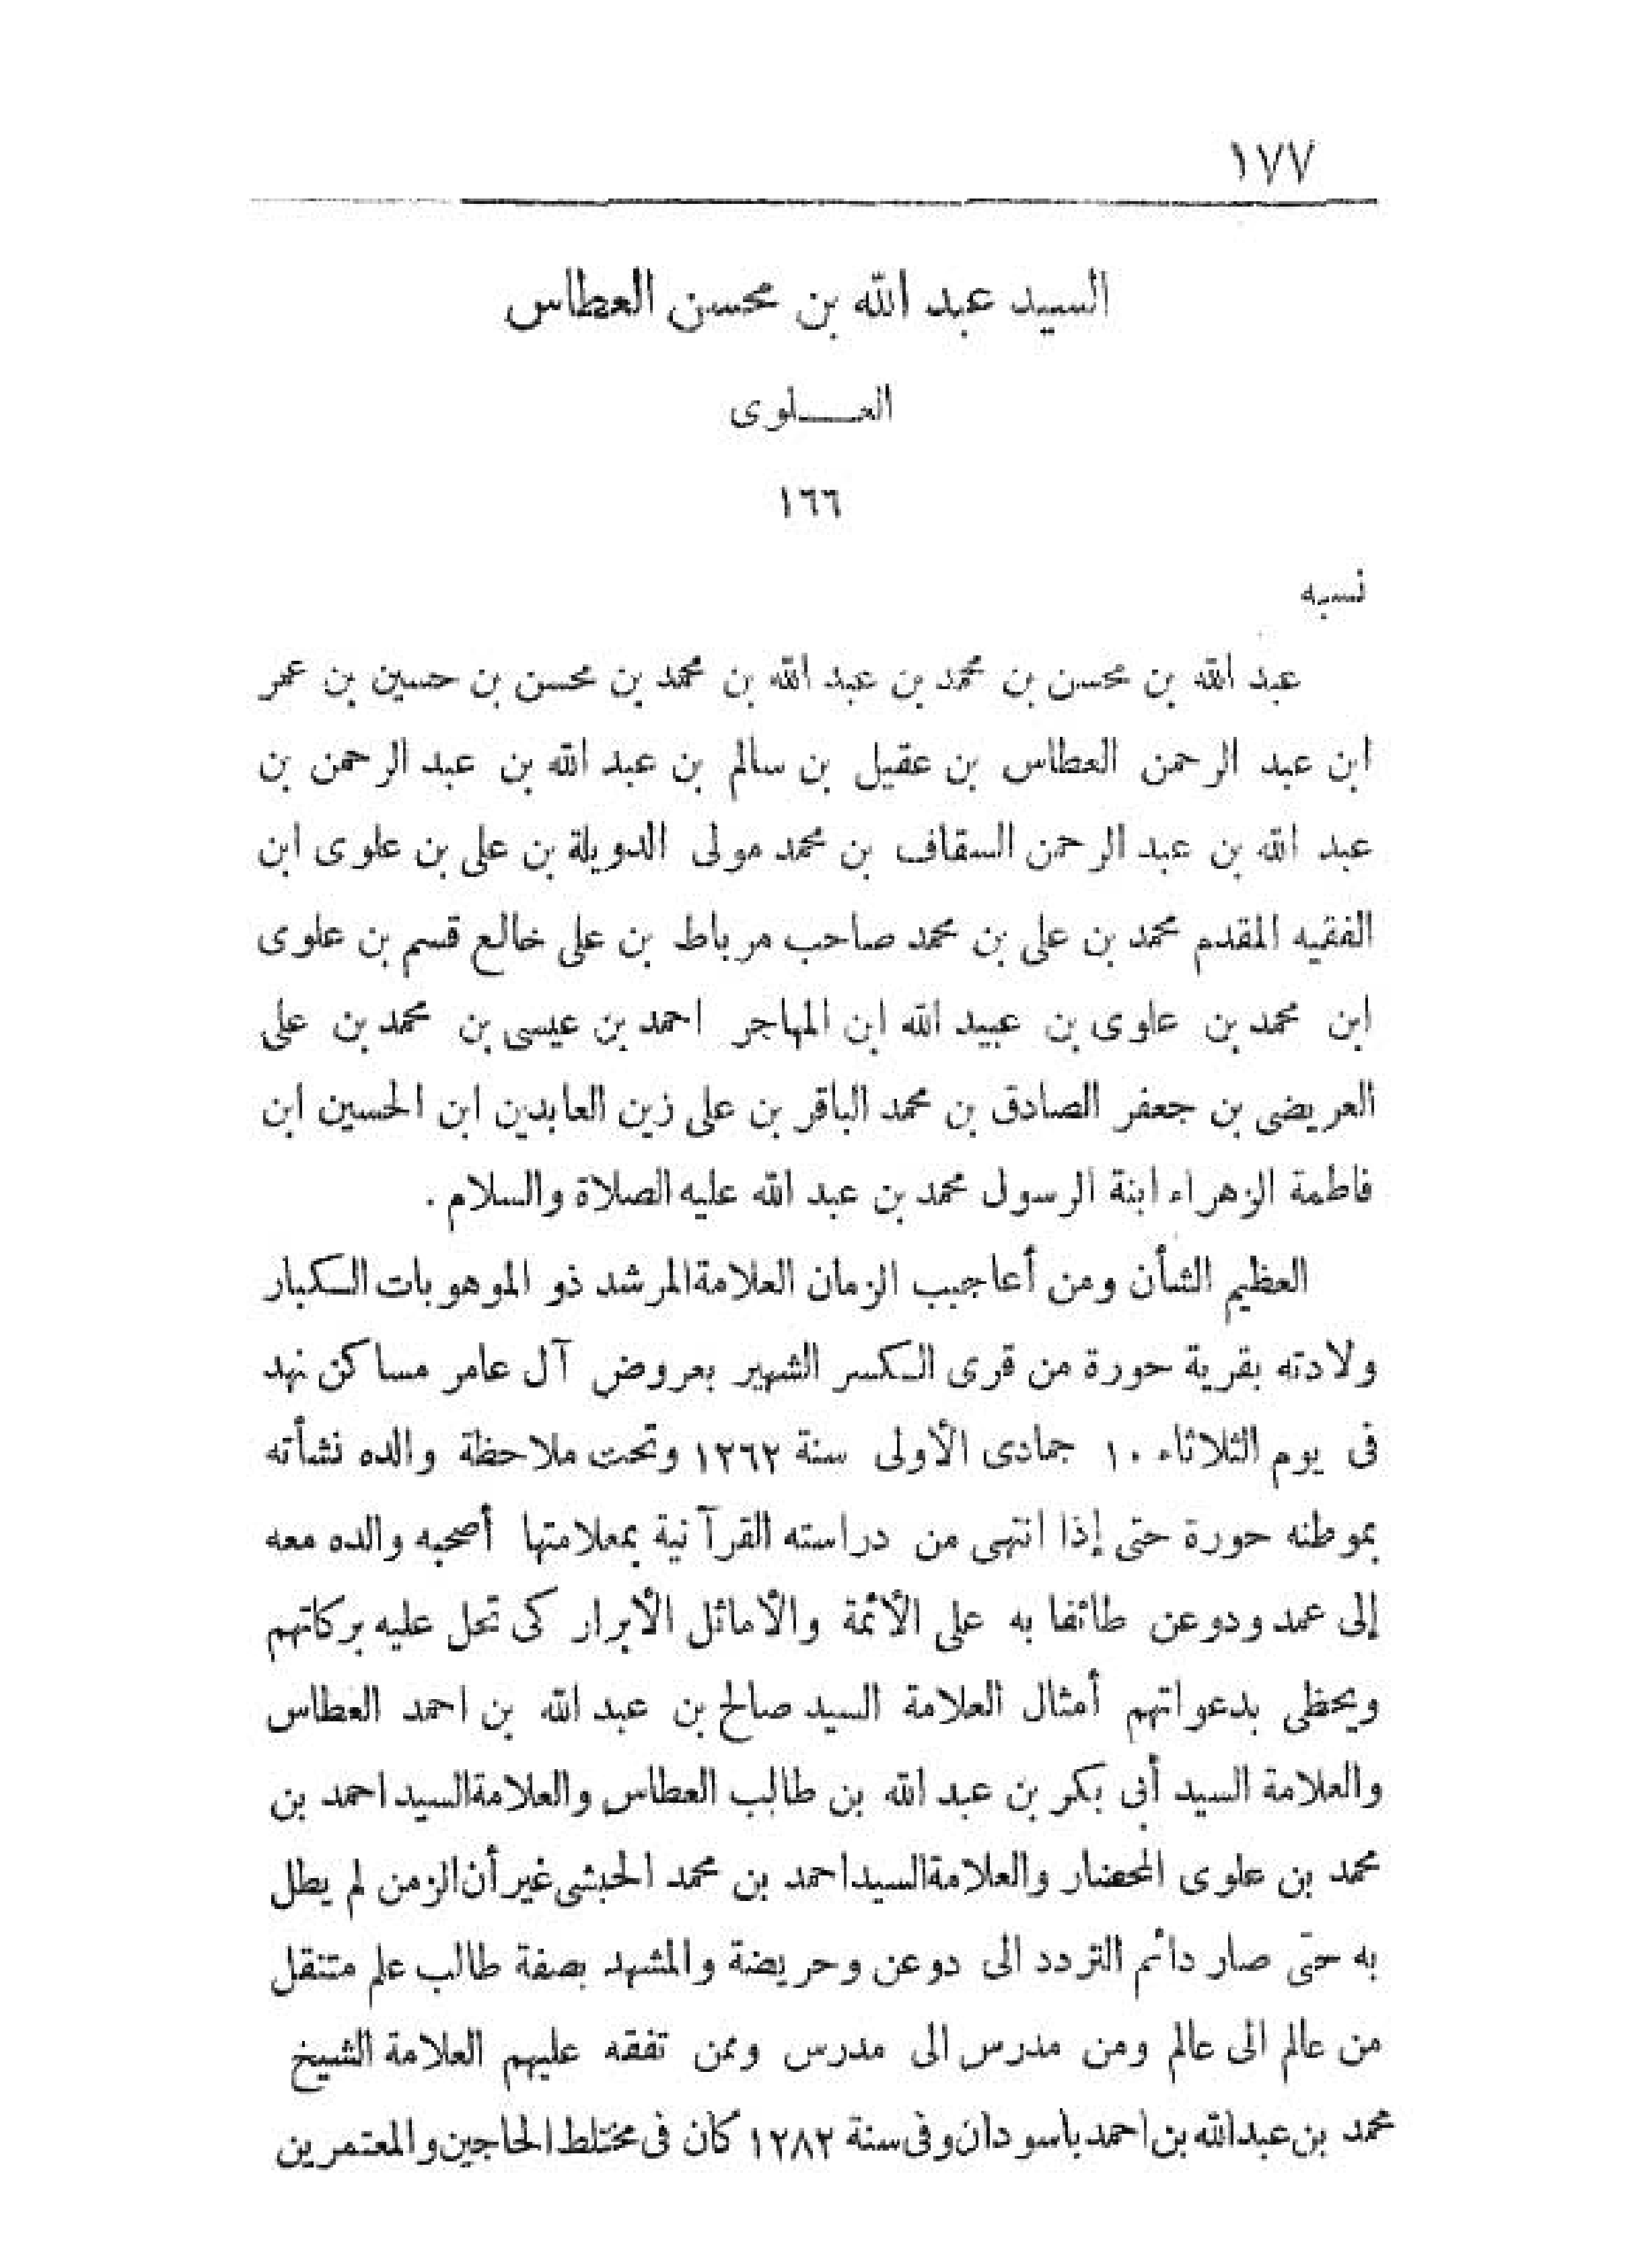 ١٧٧
السيد عبد الله بن محسن العطاس
العـــلوى
١٦٦
نسبه
عبد الله بن محسن بن محمد بن عبد الله بن محمد بن محسن بن حسين بن عمر
ابن عبد الرحمن العطاس بن عقيل بن سالم بن عبد الله بن عبد الرحمن بن
عبد الله بن عبد الرحمن السقاف بن محمد مولى الدويلة بن على بن علوى ابن
الفقيه المقدم محمد بن على بن محمد صاحب مرباط بن على خالع قسم بن علوى
ابن محمد بن علوى بن عبيد الله ابن المهاجر احمد بن عيسى بن محمد بن على
العريضى بن جعفر الصادق بن محمد الباقر بن على زين العابدين ابن الحسين ابن
فاطمة الزهراء ابنة الرسول محمد بن عبد الله عليه الصلاة والسلام .
العظيم الشأن ومن أعاجيب الزمان العلامة المرشد ذو الموهوبات الكبار
ولادته بقرية حورة من قرى الكسر الشهير بعروض آل عامر مساكن نهد
فى يوم الثلاثاء ١٠ جمادى الأولى سنة ١٢٦٢ وتحت ملاحظة والده نشأته
بموطنه حورة حتى إذا انتهى من دراسته القرآنية بمعلامتها أصحبه والده معه
إلى عمد ودوعن طائفا به على الأئمة والأماثل الأبرار كى تحل عليه بركاتهم
ويحظى بدعواتهم أمثال العلامة السيد صالح بن عبد الله بن احمد العطاس
والعلامة السيد أبى بكر بن عبد الله بن طالب العطاس والعلامة السيد احمد بن
محمد بن علوى المحضار والعلامة السيد احمد بن محمد الحبشى غير أن الزمن لم يطل
به حتى صار دائم التردد الى دوعن وحريضة والمشهد بصفة طالب علم متنقل
من عالم الى عالم ومن مدرس الى مدرس وممن تفقه عليهم العلامة الشيخ
محمد بن عبدالله بن احمد باسودان وفى سنة ١٢٨٢ كان فى مختلط الحاجين والمعتمرين